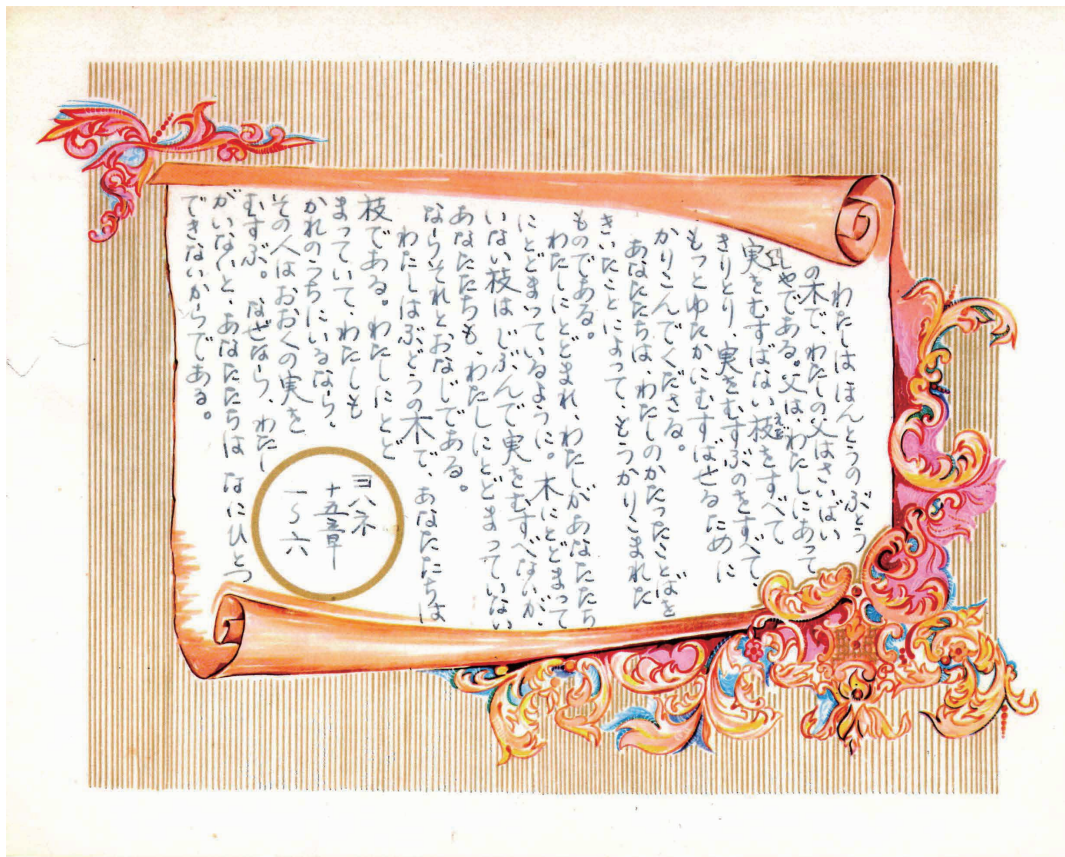 わたしはほんとうのぶとう
の木で、わたしの父はさいばい
しゃである。父はわたしにあって
実をむすばない枝をすべて
えだ
きりとり、実をむすぶのをすべて、
もっとゆたかにむすばせるために
かりこんでくださる。
あなたたちは、わたしのかたったことばを
きいたことによって、もうかりこまれた
ものである。
わたしにとどまれ、わたしがあなたたち
にとどまっているように。木にとどまって
いない枝はじぶんで実をむすべないが、
あなたたちも、わたしにとどまっていない
ならそれとおなじである。
わたしはぶどうの木で、あなたたちは
枝である。わたしにとど
まっていて、わたしも
かれのうちにいるなら、
その人はおおくの実を
むすぶ。なぜなら、わたし
がいないと、あなたたちは なにひとつ
できないからである。
ヨハネ
十五章
一〜六